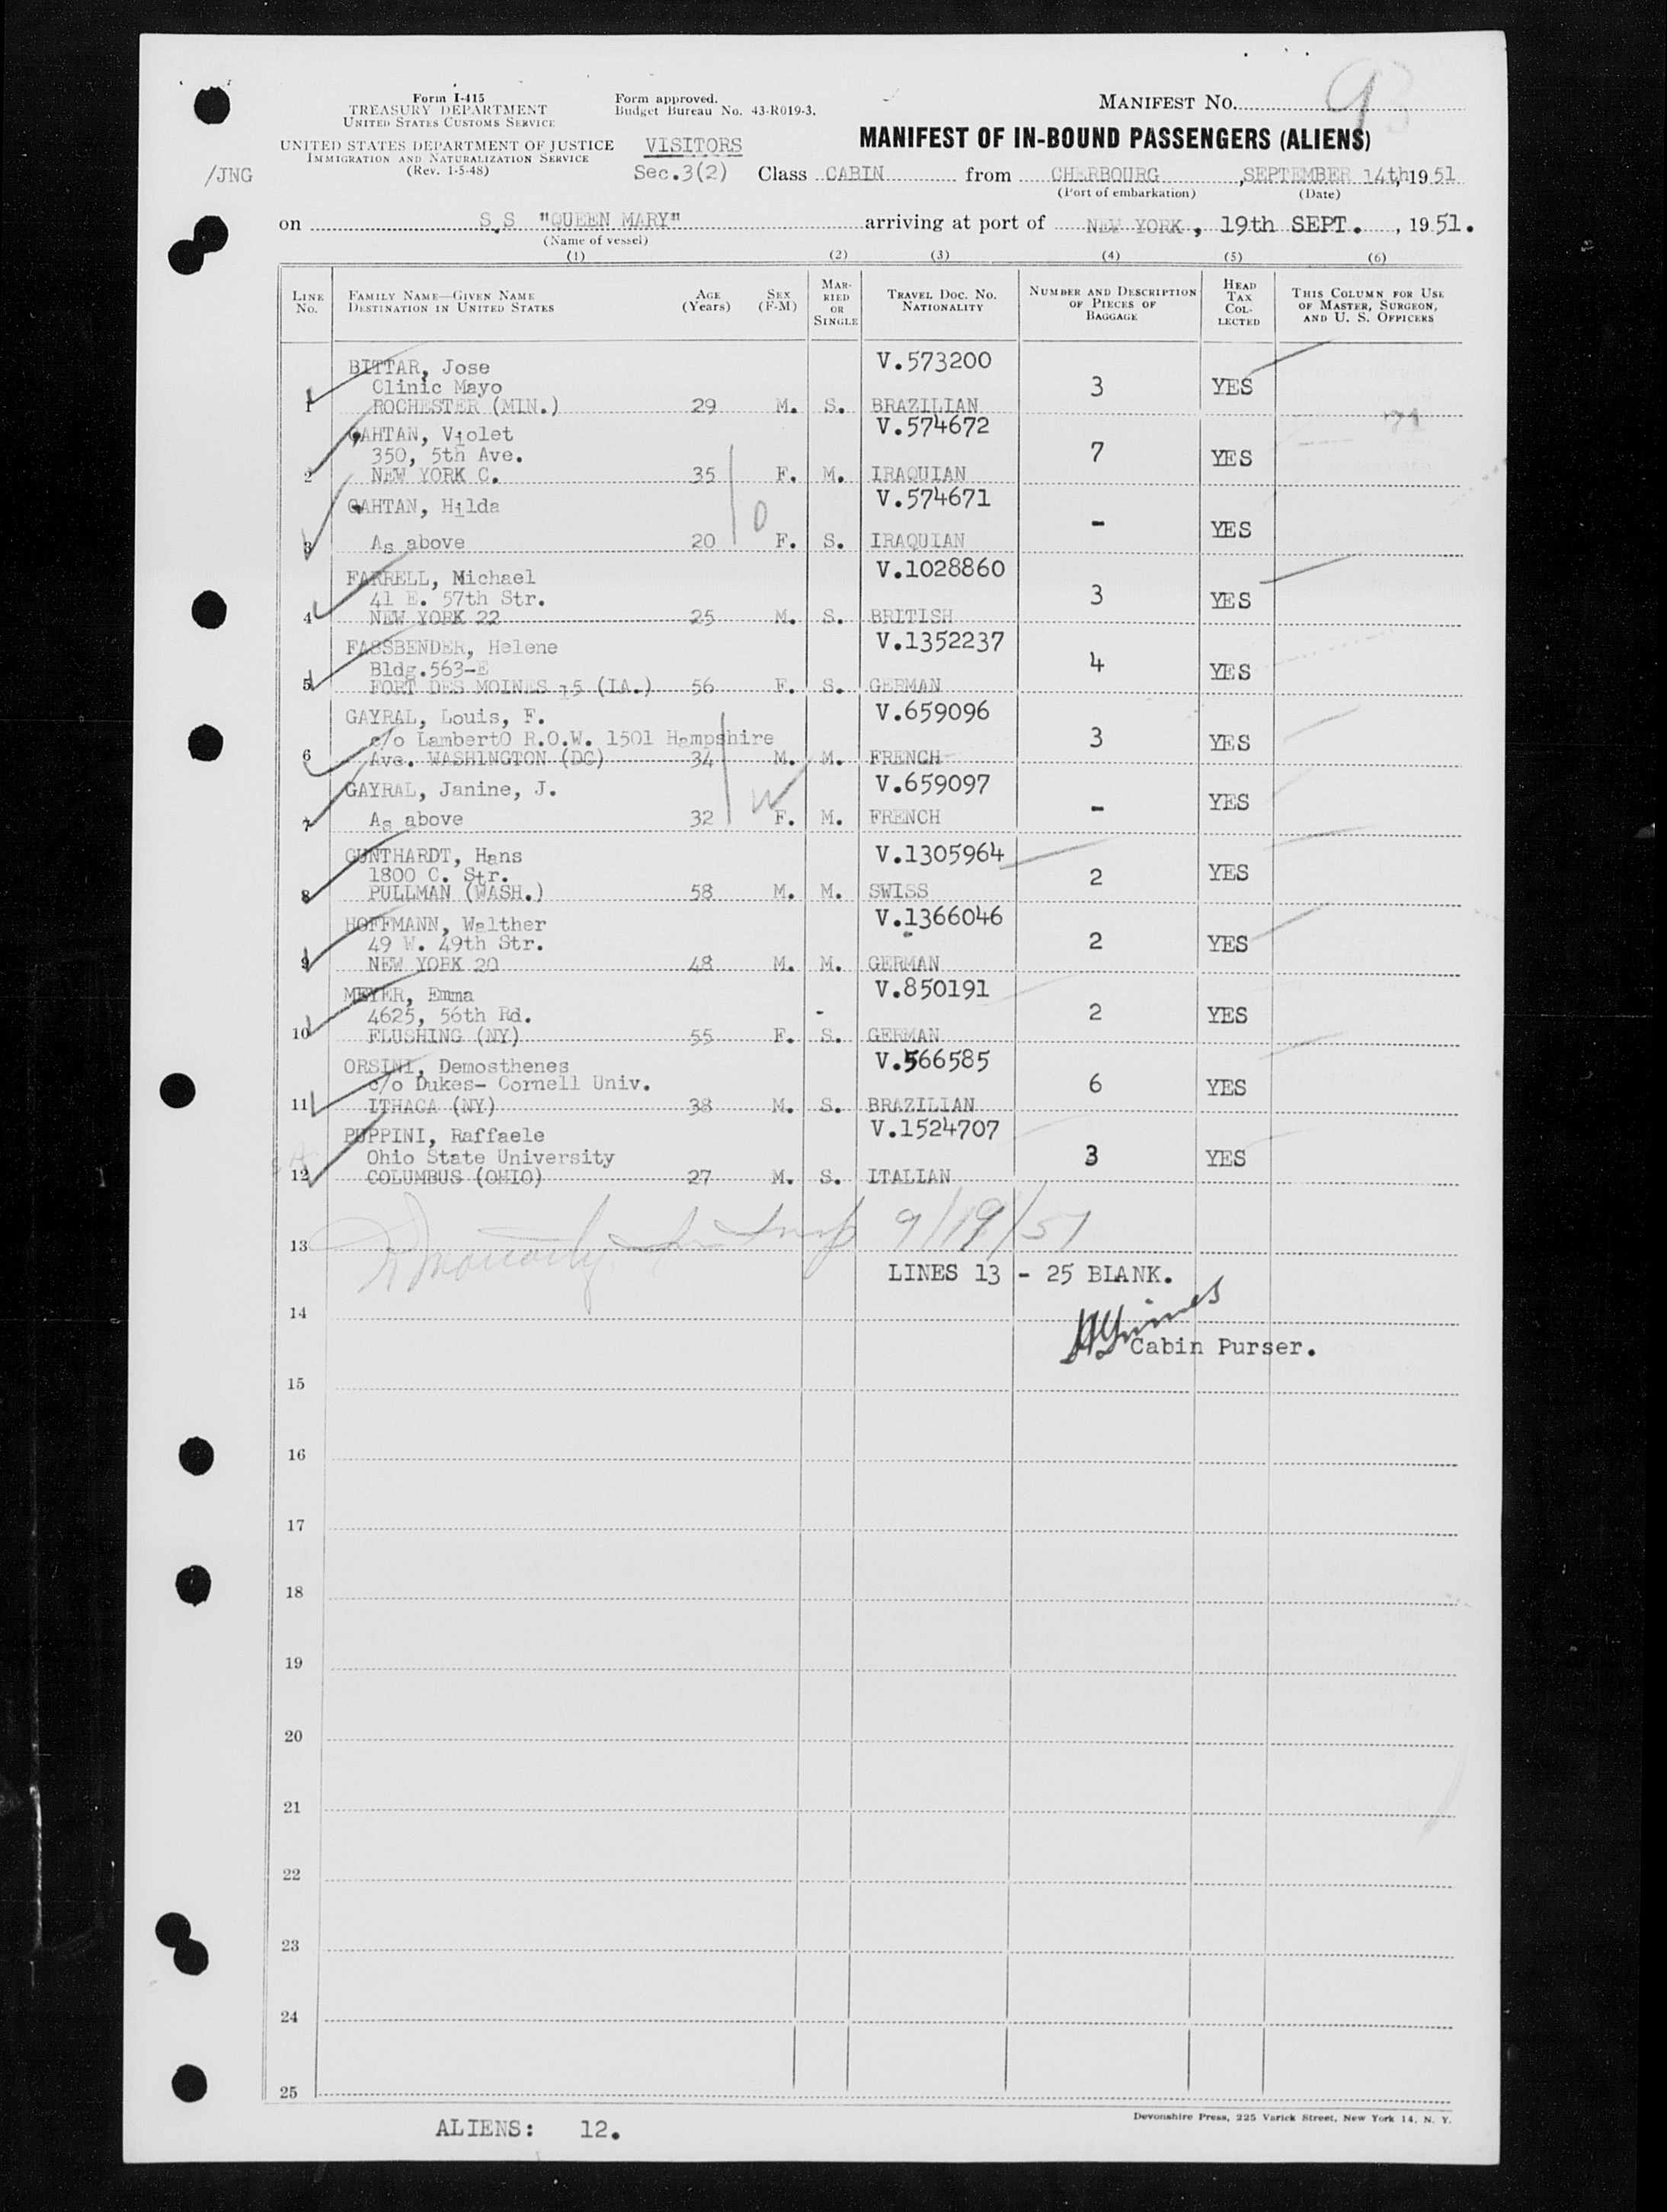 Form I-415
TREASURY DEPARTMENT
UNITED STATES CUSTOMS SERVICE
UNITED STATES DEPARTMENT OF JUSTICE
IMMIGRATION AND NATURALIZATION SERVICE
(Rev. 1-5-48)
/JNG
Form approved.
Budget Bureau No. 43-R019-3.
VISITORS
Sec.3(2)
MANIFEST NO. 9
MANIFEST OF IN-BOUND PASSENGERS (ALIENS)
Class CABIN from CHERBOURG, SEPTEMBER 14th, 1951
(Port of embarkation) (Date)
on S.S "QUEEN MARY" arriving at port of NEW YORK, 19th SEPT., 1951.
(Name of vessel)
(1) (2) (3) (4) (5) (6)
LINE NO. FAMILY NAME—GIVEN NAME DESTINATION IN UNITED STATES AGE (Years) SEX (F-M) MARRIED OR SINGLE TRAVEL DOC. NO. NATIONALITY NUMBER AND DESCRIPTION OF PIECES OF BAGGAGE HEAD TAX COLLECTED THIS COLUMN FOR USE OF MASTER, SURGEON, AND U. S. OFFICERS
BITTAR, Jose V.573200
Clinic Mayo 3 YES
1 ROCHESTER (MIN.) 29 M. S. BRAZILIAN
GAHTAN, Violet V.574672
350, 5th Ave. 7 YES
2 NEW YORK C. 35 F. M. IRAQUIAN
GAHTAN, Hilda V.574671
- YES
3 As above 20 F. S. IRAQUIAN
FARRELL, Michael V.1028860
41 E. 57th Str. 3 YES
4 NEW YORK 22 25 M. S. BRITISH
FASSBENDER, Helene V.1352237
Bldg.563-E 4 YES
5 FORT DES MOINES 15 (IA.) 56 F. S. GERMAN
GAYRAL, Louis, F. V.659096
c/o LambertO R.O.W. 1501 Hampshire 3 YES
6 Ave. WASHINGTON (DC) 34 M. M. FRENCH
GAYRAL, Janine, J. V.659097
- YES
7 As above 32 F. M. FRENCH
GUNTHARDT, Hans V.1305964
1800 C. Str. 2 YES
8 PULLMAN (WASH.) 58 M. M. SWISS
HOFFMANN, Walther V.1366046
49 W. 49th Str. 2 YES
9 NEW YORK 20 48 M. M. GERMAN
MEYER, Emma V.850191
4625, 56th Rd. 2 YES
10 FLUSHING (NY) 55 F. S. GERMAN
ORSINI, Demosthenes V.566585
c/o Dukes- Cornell Univ. 6 YES
11 ITHACA (NY) 38 M. S. BRAZILIAN
PUPPINI, Raffaele V.1524707
Ohio State University 3 YES
12 COLUMBUS (OHIO) 27 M. S. ITALIAN
9/19/51
13
LINES 13 - 25 BLANK.
14
Cabin Purser.
15
16
17
18
19
20
21
22
23
24
25
Devonshire Press, 225 Varick Street, New York 14, N. Y.
ALIENS: 12.